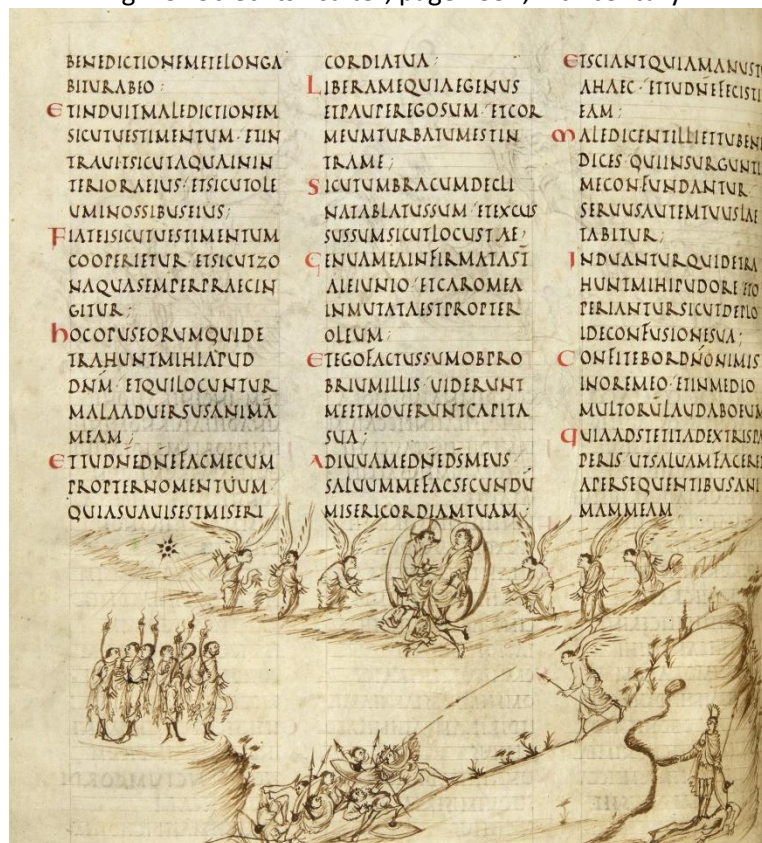 BENEDICTIONEMETELONGA
BITURABEO:
ETINDUITMALEDICTIONEM
SICUTUESTIMENTUM·ETIN
TRAUITSICUTAQUAININ
TERIORAEIUS·ETSICUTOLE
UMINOSSIBUSEIUS;
FIATEISICUTUESTIMENTUM
COOPERIETUR·ETSICUTZO
NAQUASEMPERPRAECIN
GITUR;
HOCOPUSEORUMQUIDE
TRAHUNTMIHIAPUD
DNM·ETQUILOCUNTUR
MALAADUERSUSANIMA
MEAM;
ETTUDNEDNEFACMECUM
PROPTERNOMENTUUM
QUIASUAUISESTMISERI
CORDIATUA:
LIBERAMEQUIAEGENUS
ETPAUPEREGOSUM·ETCOR
MEUMTURBATUMESTIN
TRAME;
SICUTUMBRACUMDECLI
NATABLATUSSUM·ETEXCUS
SUSSUMSICUTLOCUSTAE;
GENUAMEAINFIRMATAST
AIEIUNIO·ETCAROMEA
INMUTATAESTPROPTER
OLEUM;
ETEGOFACTUSSUMOBPRO
BRIUMILLIS·UIDERUNT
MEETMOUERUNTCAPITA
SUA;
ADIUUAMEDNEDSMEUS
SALUUMMEFACSECUNDŪ
MISERICORDIAMTUAM·
ETSCIANTQUIAMANUST
AHAEC·ETTUDNEFECISTI
EAM;
MALEDICENTILLIETTUBENE
DICES·QUIINSURGUNTI
MECONFUNDANTUR·
SERUUSAUTEMTUUSLAE
TABITUR;
INDUANTURQUIDETRA
HUNTMIHIPUDORE·ETO
PERIANTURSICUTDIPLO
IDECONFUSIONESUA;
CONFITEBORDNONIMIS
INOREMEO·ETINMEDIO
MULTORŪLAUDABOEUM
QUIAADSTETITADEXTRISPA
PERIS·UTSALUAMFACERE
APERSEQUENTIBUSANI
MAMMEAM